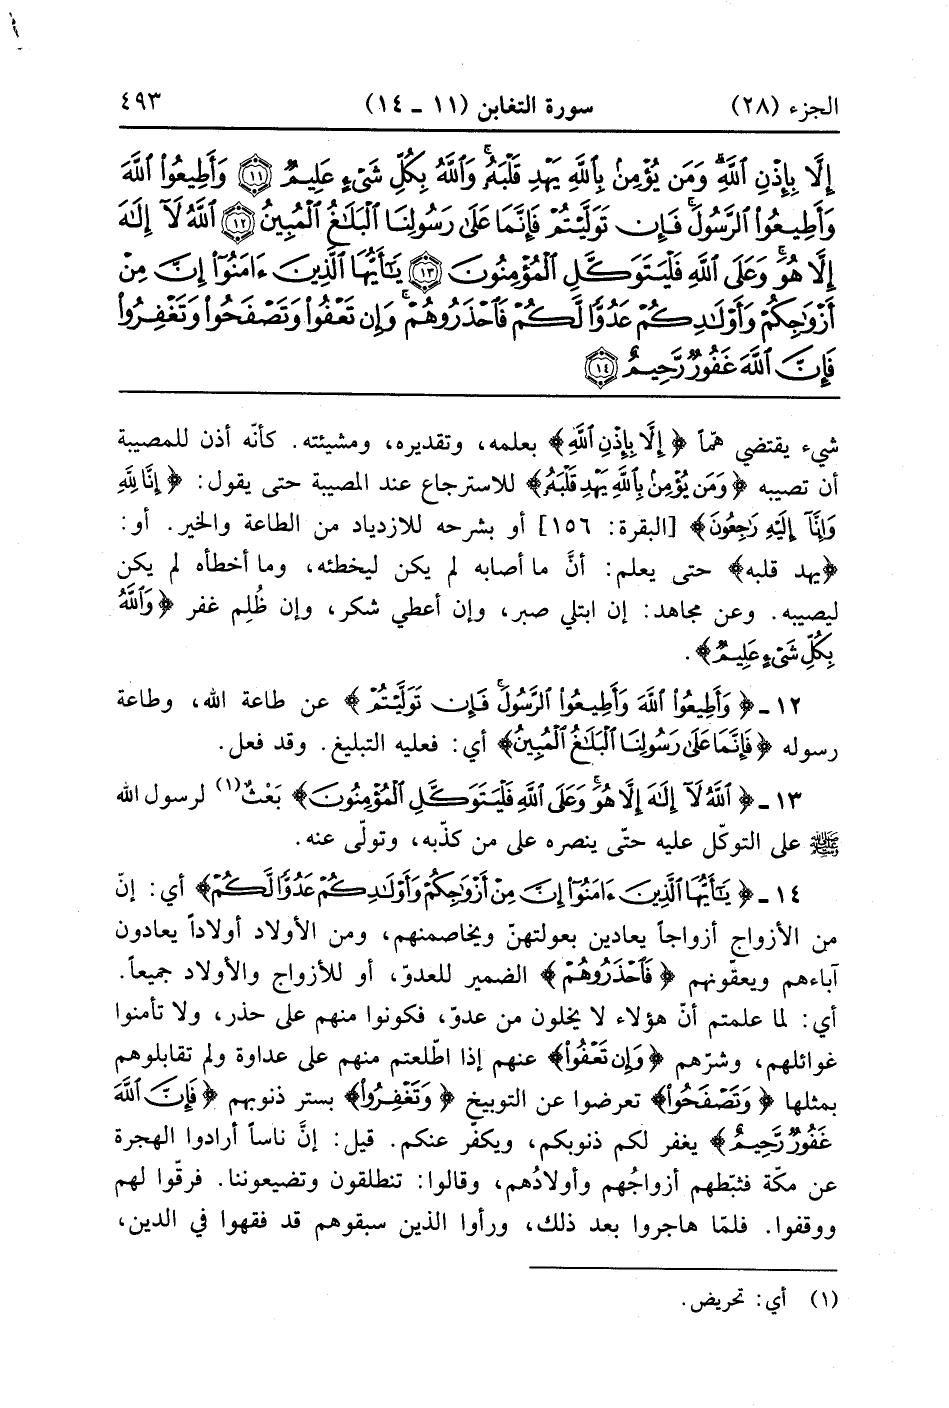 الجزء (٢٨) سورة التغابن (١١ - ١٤) ٤٩٣
إِلَّا بِإِذْنِ ٱللَّهِ ۗ وَمَن يُؤْمِنۢ بِٱللَّهِ يَهْدِ قَلْبَهُۥ ۚ وَٱللَّهُ بِكُلِّ شَىْءٍ عَلِيمٌ ۝١١ وَأَطِيعُوا۟ ٱللَّهَ
وَأَطِيعُوا۟ ٱلرَّسُولَ ۚ فَإِن تَوَلَّيْتُمْ فَإِنَّمَا عَلَىٰ رَسُولِنَا ٱلْبَلَـٰغُ ٱلْمُبِينُ ۝١٢ ٱللَّهُ لَآ إِلَـٰهَ
إِلَّا هُوَ ۚ وَعَلَى ٱللَّهِ فَلْيَتَوَكَّلِ ٱلْمُؤْمِنُونَ ۝١٣ يَـٰٓأَيُّهَا ٱلَّذِينَ ءَامَنُوٓا۟ إِنَّ مِنْ
أَزْوَٰجِكُمْ وَأَوْلَـٰدِكُمْ عَدُوًّا لَّكُمْ فَٱحْذَرُوهُمْ ۚ وَإِن تَعْفُوا۟ وَتَصْفَحُوا۟ وَتَغْفِرُوا۟
فَإِنَّ ٱللَّهَ غَفُورٌ رَّحِيمٌ ۝١٤
شيء يقتضي همّاً ﴿إِلَّا بِإِذْنِ ٱللَّهِ﴾ بعلمه، وتقديره، ومشيئته. كأنّه أذن للمصيبة
أن تصيبه ﴿وَمَن يُؤْمِنۢ بِٱللَّهِ يَهْدِ قَلْبَهُۥ﴾ للاسترجاع عند المصيبة حتى يقول: ﴿إِنَّا لِلَّهِ
وَإِنَّآ إِلَيْهِ رَٰجِعُونَ﴾ [البقرة: ١٥٦] أو بشرحه للازدياد من الطاعة والخير. أو:
﴿يهد قلبه﴾ حتى يعلم: أنَّ ما أصابه لم يكن ليخطئه، وما أخطأه لم يكن
ليصيبه. وعن مجاهد: إن ابتلي صبر، وإن أعطي شكر، وإن ظُلِم غفر ﴿وَٱللَّهُ
بِكُلِّ شَىْءٍ عَلِيمٌ﴾.
١٢ - ﴿وَأَطِيعُوا۟ ٱللَّهَ وَأَطِيعُوا۟ ٱلرَّسُولَ ۚ فَإِن تَوَلَّيْتُمْ﴾ عن طاعة الله، وطاعة
رسوله ﴿فَإِنَّمَا عَلَىٰ رَسُولِنَا ٱلْبَلَـٰغُ ٱلْمُبِينُ﴾ أي: فعليه التبليغ. وقد فعل.
١٣ - ﴿ٱللَّهُ لَآ إِلَـٰهَ إِلَّا هُوَ ۚ وَعَلَى ٱللَّهِ فَلْيَتَوَكَّلِ ٱلْمُؤْمِنُونَ﴾ بَعْثٌ(١) لرسول الله
ﷺ على التوكّل عليه حتّى ينصره على من كذّبه، وتولّى عنه.
١٤ - ﴿يَـٰٓأَيُّهَا ٱلَّذِينَ ءَامَنُوٓا۟ إِنَّ مِنْ أَزْوَٰجِكُمْ وَأَوْلَـٰدِكُمْ عَدُوًّا لَّكُمْ﴾ أي: إنّ
من الأزواج أزواجاً يعادين بعولتهنّ ويخاصمنهم، ومن الأولاد أولاداً يعادون
آباءهم ويعقّونهم ﴿فَٱحْذَرُوهُمْ﴾ الضمير للعدوّ، أو للأزواج والأولاد جميعاً.
أي: لما علمتم أنّ هؤلاء لا يخلون من عدوّ، فكونوا منهم على حذر، ولا تأمنوا
غوائلهم، وشرّهم ﴿وَإِن تَعْفُوا۟﴾ عنهم إذا اطّلعتم منهم على عداوة ولم تقابلوهم
بمثلها ﴿وَتَصْفَحُوا۟﴾ تعرضوا عن التوبيخ ﴿وَتَغْفِرُوا۟﴾ بستر ذنوبهم ﴿فَإِنَّ ٱللَّهَ
غَفُورٌ رَّحِيمٌ﴾ يغفر لكم ذنوبكم، ويكفّر عنكم. قيل: إنَّ ناساً أرادوا الهجرة
عن مكّة فثبّطهم أزواجُهم وأولادُهم، وقالوا: تنطلقون وتضيعوننا. فرقّوا لهم
ووقفوا. فلمّا هاجروا بعد ذلك، ورأوا الذين سبقوهم قد فقهوا في الدين،
(١) أي: تحريض.